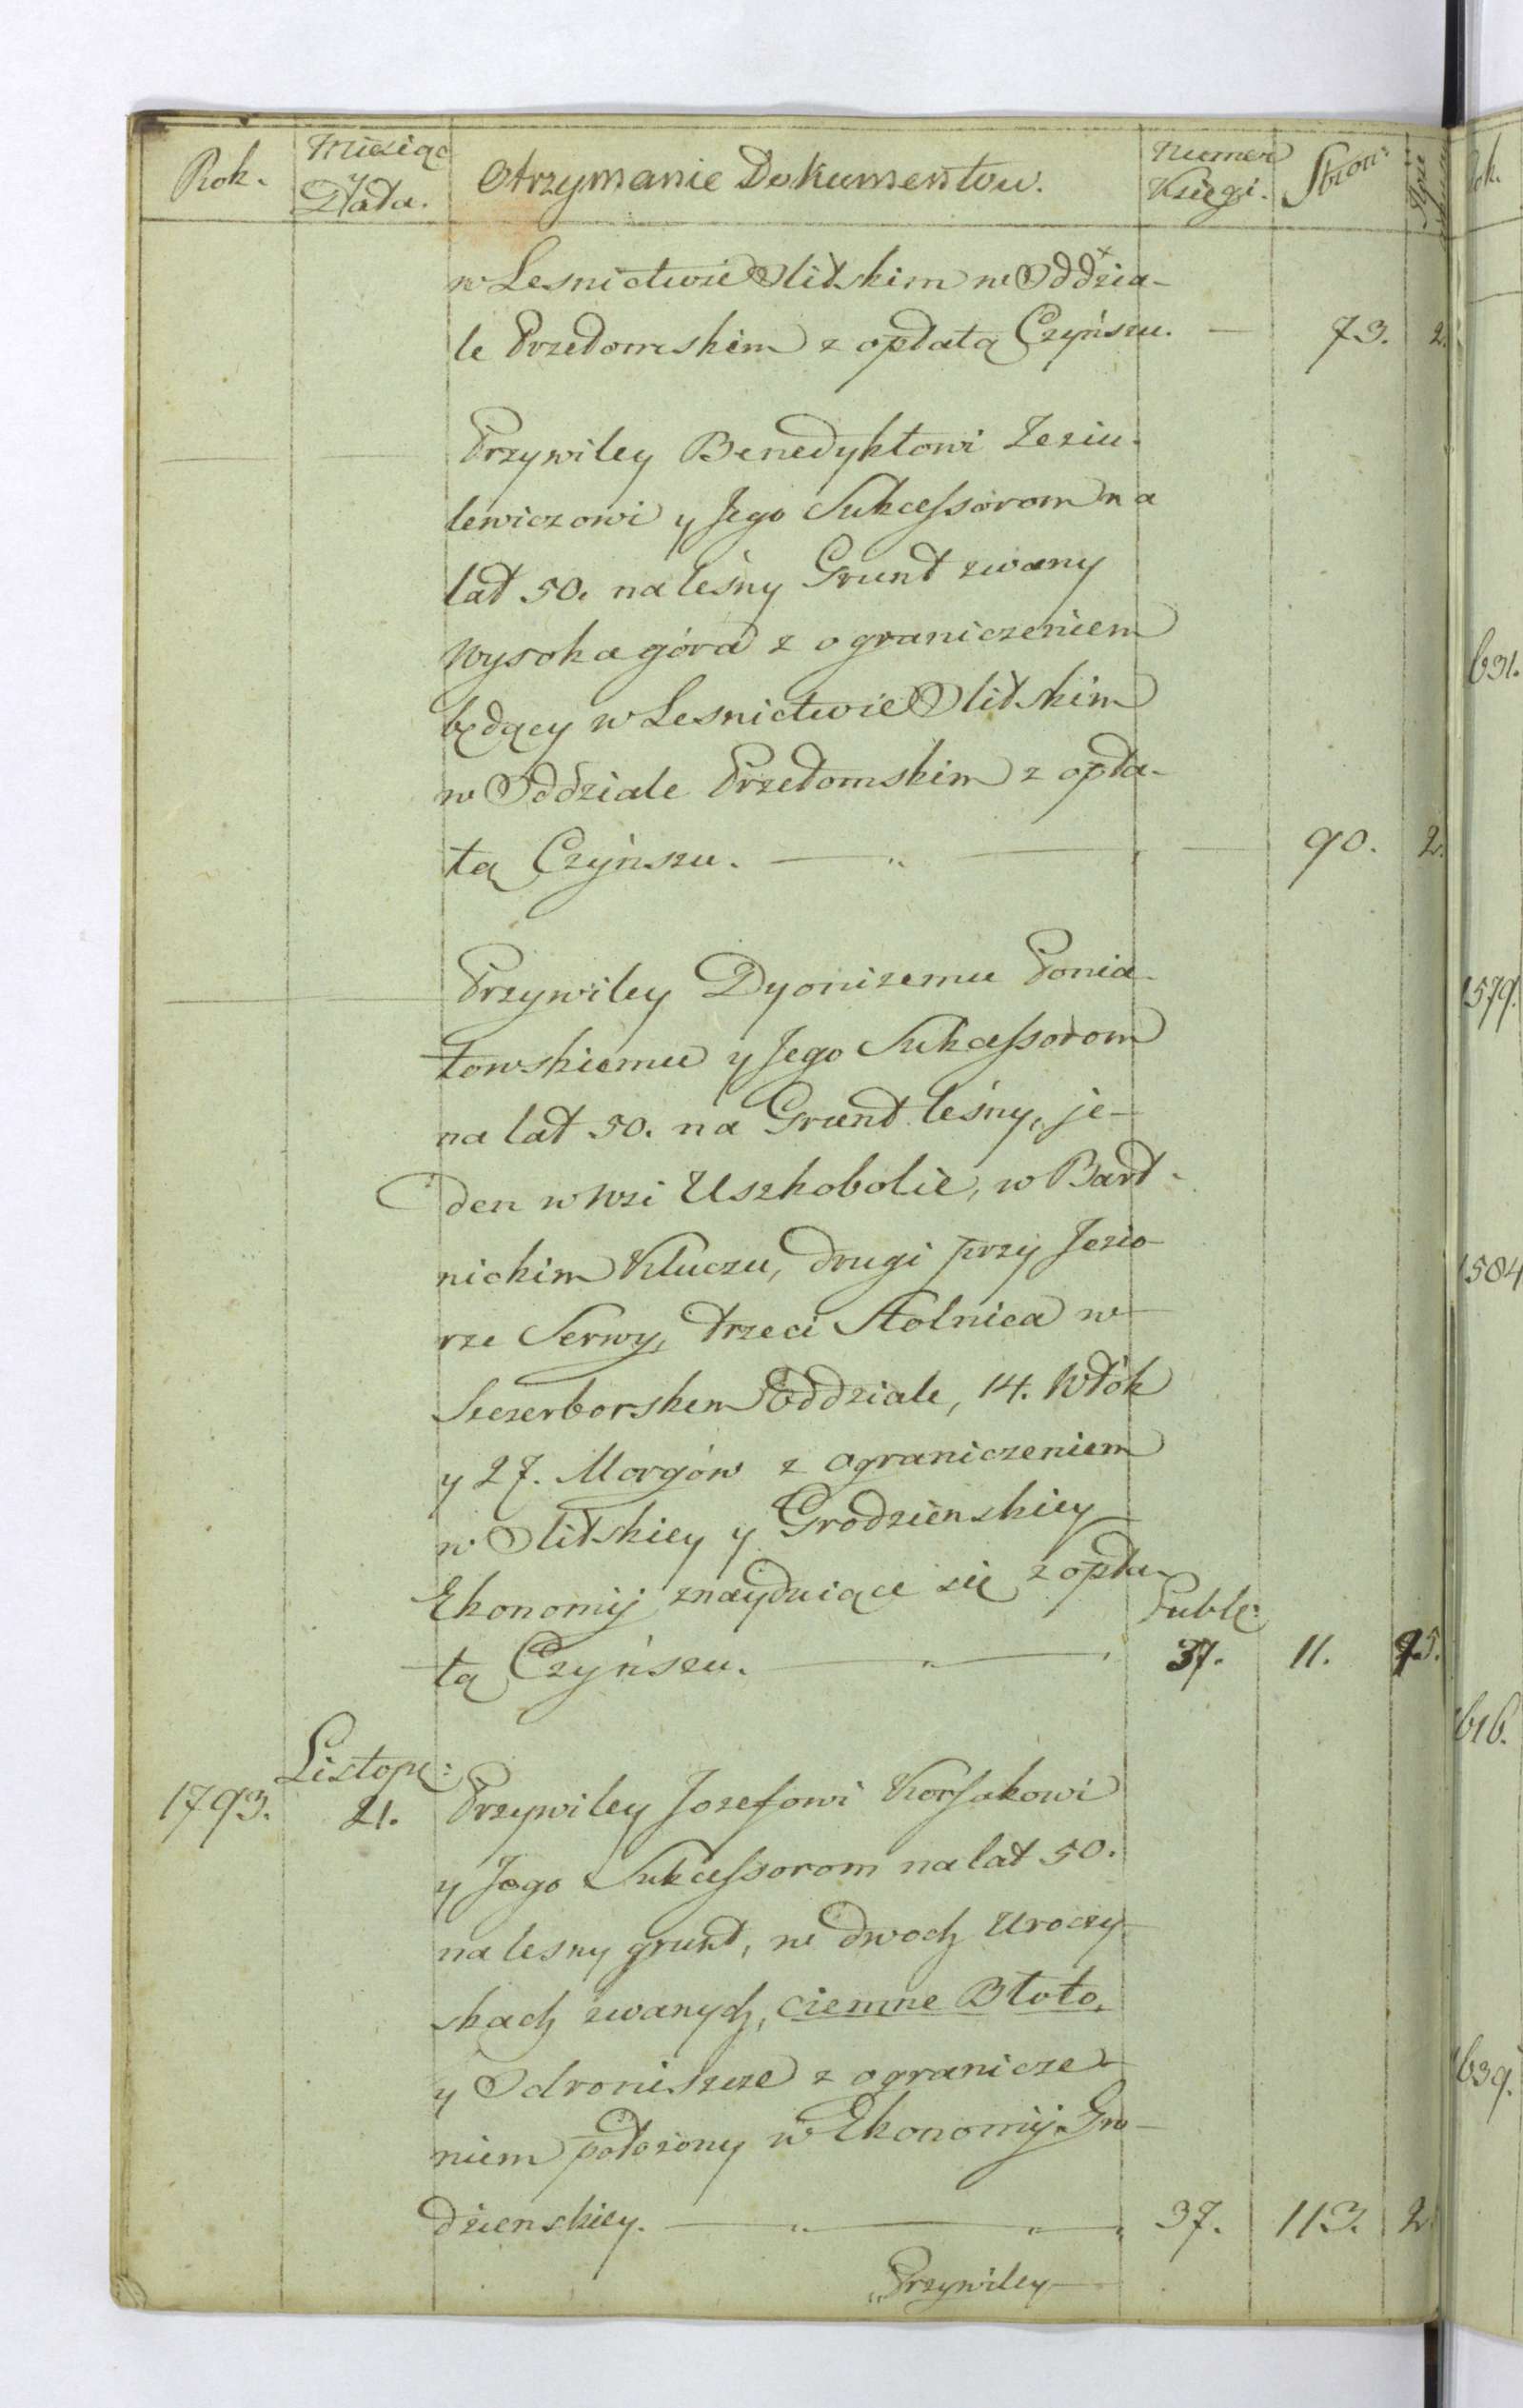 Rok.
Miesiąc
y
Data.
Otrzymanie Dokumentow.
Numer
Księgi.
Stron:
w Lesnictwie Olitskim w Oddzia-
le Przełomskim z opłatą Czyńszu. — 73. 2.
Przywiley Benedyktowi Zeziu-
lewiczowi y Jego Sukcessorom na
lat 50. na leśny Grunt zwany
Wysoka góra z ograniczeniem
będący w Lesnictwie Olitskim
w Oddziale Przełomskim z opła-
tą Czyńszu. — „ — 90. 2.
Przywiley Dyonizemu Ponia-
towskiemu y Jego Sukcessorom
na lat 50. na Grunt leśny, je-
den w Wsi Uszkobolie, w Bart-
nickim Kluczu, drugi przy Jezio-
rze Serwy, trzeci Stolnica w
Szczerborskem Oddziale, 14. Włók
y 27. Morgów z ograniczeniem
w Olitskiey y Grodzienskiey
Ekonomij znayduiące się z opła-
tą Czyńszu. — „ — Publ: 37. 11.
1793. Listop: 21. Przywiley Jozefowi Korsakowi
y Jego Sukcessorom na lat 50.
na lesny grunt, w dwoch Uroczy-
skach zwanych, ciemne Błoto,
y Odroniszcze z ogranicze-
niem położony w Ekonomij Gro-
dzienskiey. — „ — „ 37. 113. 2.
„Przywiley —
631.
1579.
1584
616.
639.